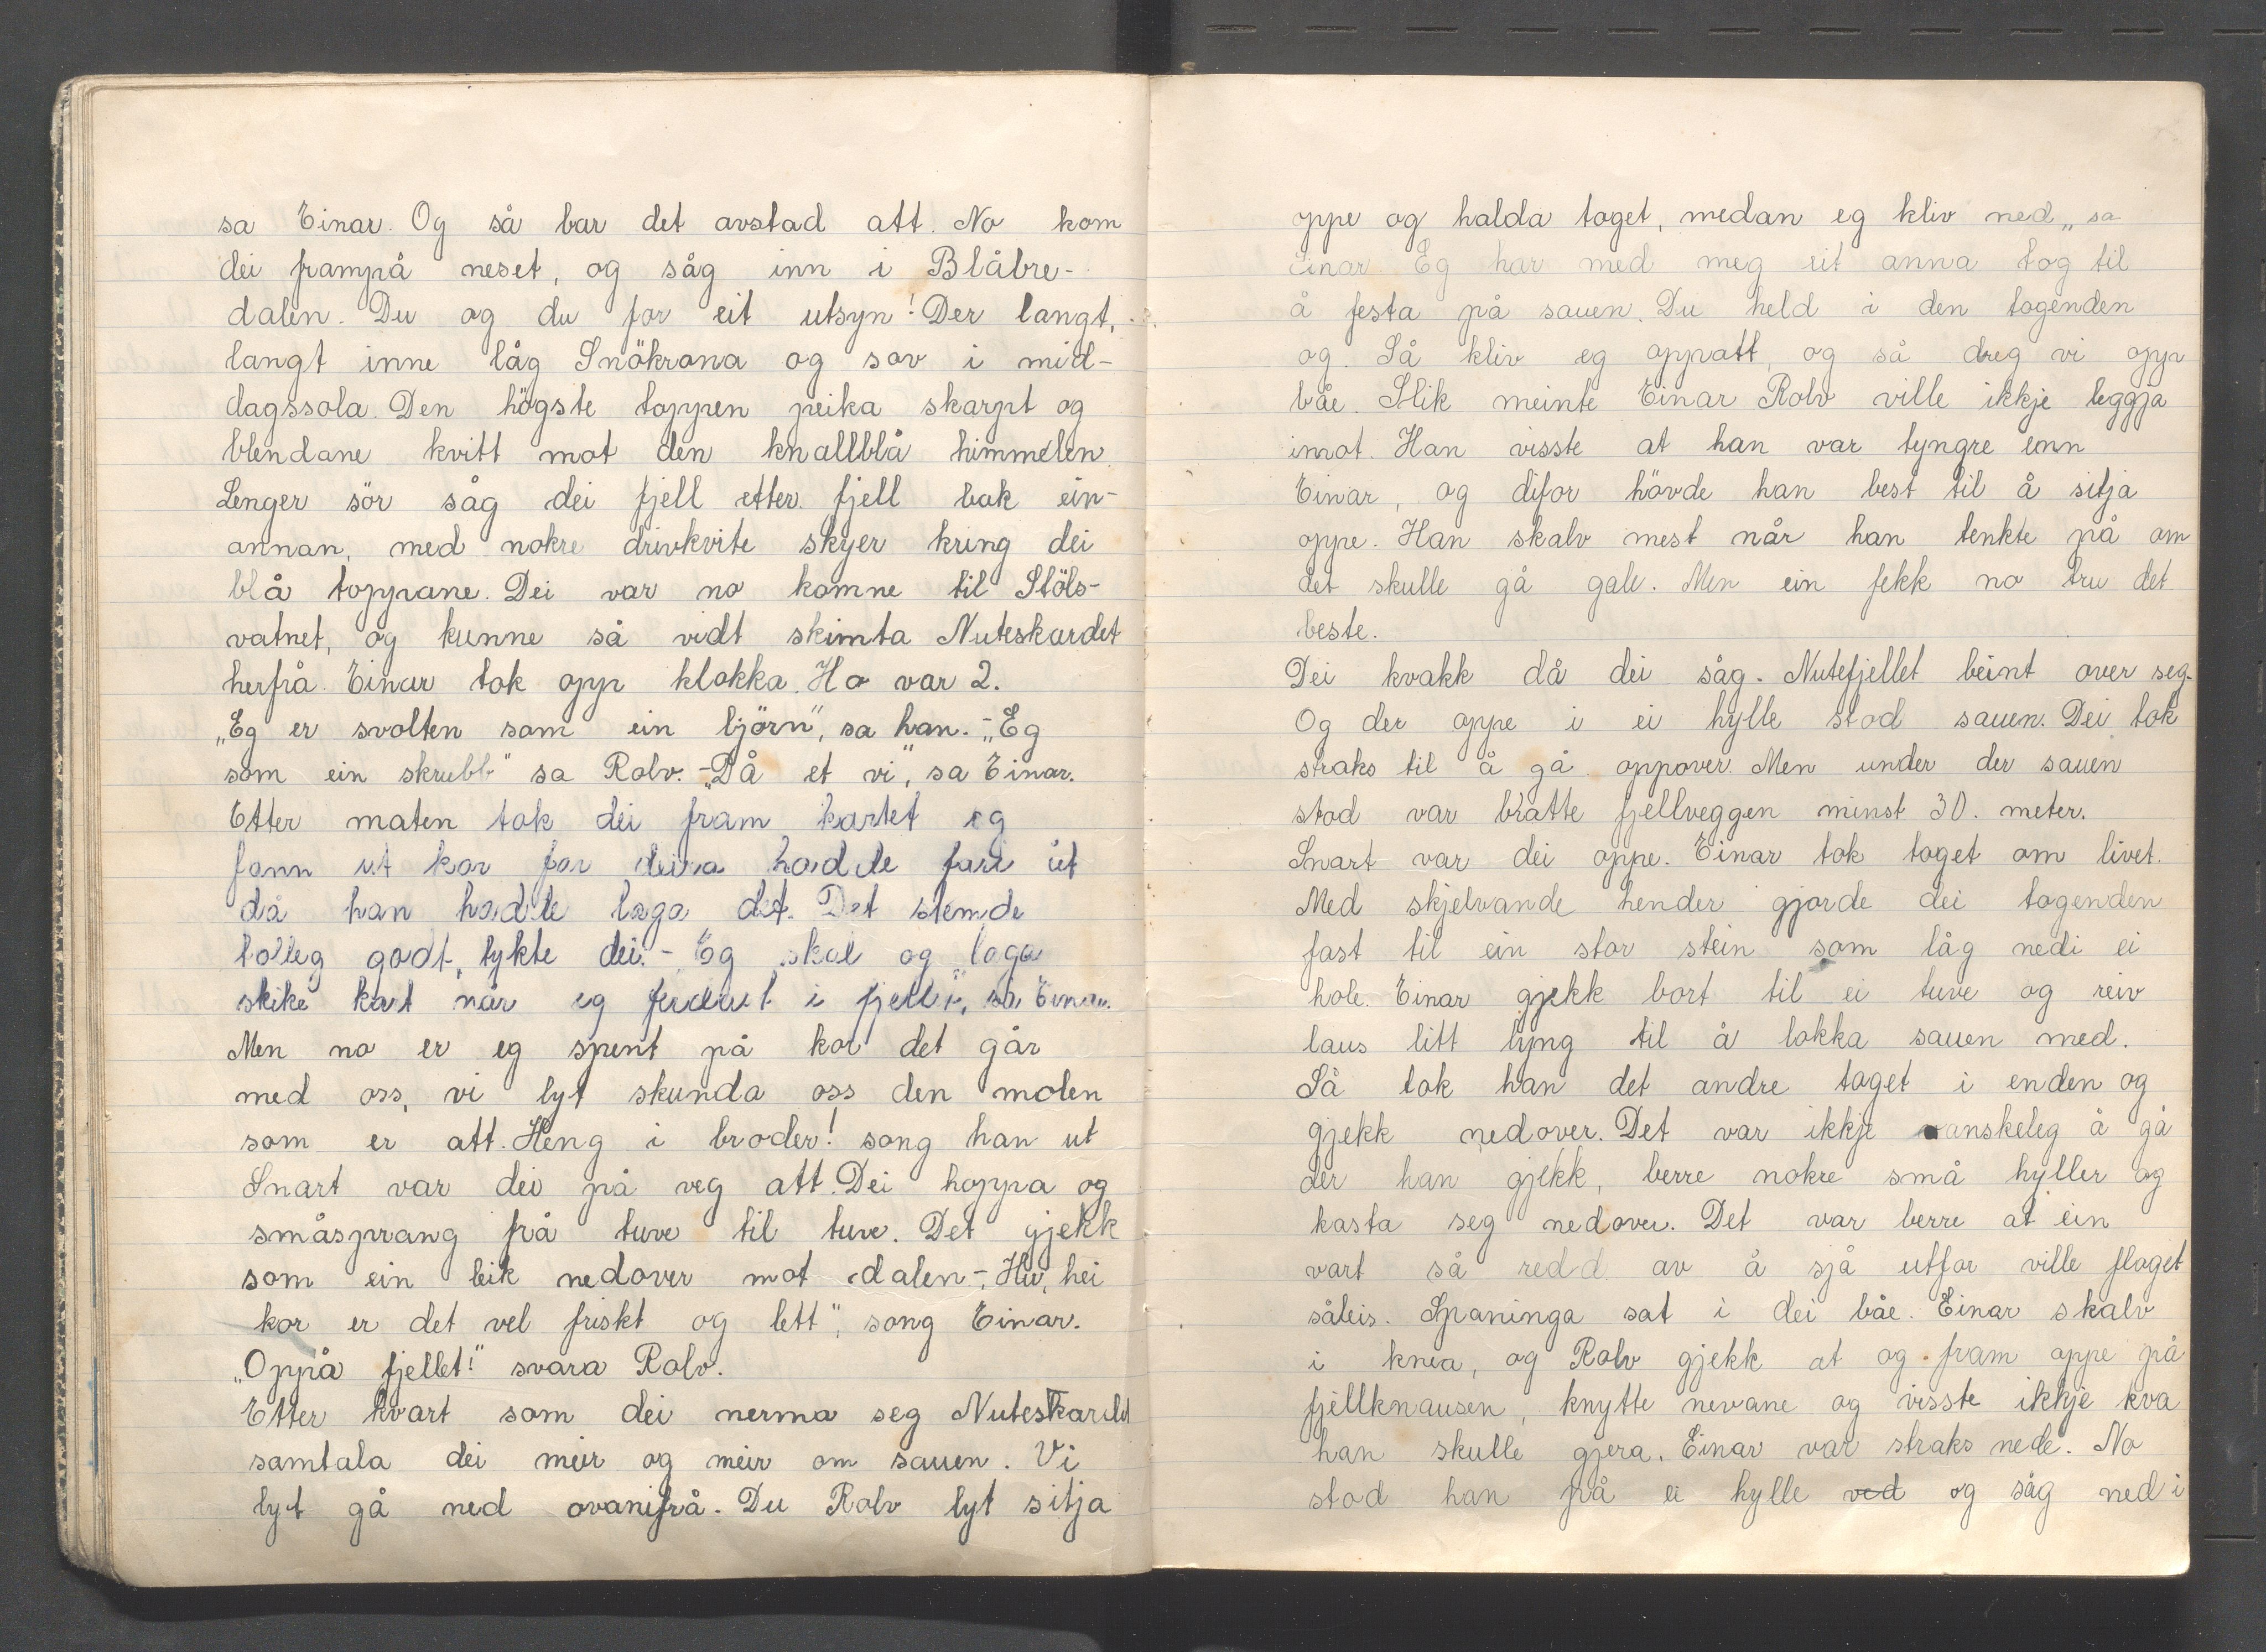 sa Einar. Og så bar det avstad att. No kom
dei frampå neset, og såg inn i Blåbre-
dalen. Du og du for eit utsyn! Der langt,
langt inne låg Snökrona og sov i mid-
dagssola. Den högste toppen peika skarpt og
blendane kvitt mot den knallblå himmelen
Lenger sör såg dei fjell etter fjell bak ein-
annan, med nokre drivkvite skyer kring dei
blå toppane. Dei var no komne til Stöls-
vatnet, og kunne så vidt skimta Nuteskardet
herfrå. Einar tok opp klokka. Ho var 2.
„Eg er svolten som ein björn", sa han. - „Eg
som ein skrubb" sa Rolv. - „Då et vi", sa Einar.
Etter maten tok dei fram kartet og
fann ut kor far deira hadde fare ut
då han hadde laga det. Det stemde
tolleg godt, tykte dei. - „Eg skal og laga
slike kart når eg ferdast i fjellet", sa Einar.
Men no er eg spent på kor det går
med oss, vi lyt skunda oss den molen
som er att. Heng i broder! song han ut
Snart var dei på veg att. Dei hoppa og
småsprang frå tuve til tuve. Det gjekk
som ein leik nedover mot dalen - „Hei, hei
kor er det vel friskt og lett", song Einar.
„Oppå fjellet!" svara Rolv.
Etter kvart som dei nerma seg Nuteskardet
samtala dei meir og meir om sauen. Vi
lyt gå ned ovanifrå. Du Rolv lyt sitja
oppe og halda toget, medan eg kliv ned„ sa
Einar. Eg har med meg eit anna tog til
å festa på sauen. Du held i den togenden
og. Så kliv eg oppatt, og så dreg vi opp
båe. Slik meinte Einar Rolv ville ikkje leggja
imot. Han visste at han var tyngre enn
Einar, og difor hövde han best til å sitja
oppe. Han skalv mest når han tenkte på om
det skulle gå gale. Men ein fekk no tru det
beste.
Dei kvakk då dei såg. Nutefjellet beint over seg.
Og der oppe i ei hylle stod sauen. Dei tok
straks til å gå oppover. Men under der sauen
stod var bratte fjellveggen minst 30. meter.
Snart var dei oppe. Einar tok toget om livet.
Med skjelvande hender gjorde dei togenden
fast til ein stor stein som låg nedi ei
hole. Einar gjekk bort til ei tuve og reiv
laus litt lyng til å lokka sauen med.
Så tok han det andre toget i enden og
gjekk nedover. Det var ikkje vanskeleg å gå
der han gjekk, berre nokre små hyller og
kasta seg nedover. Det var berre at ein
vart så redd av å sjå utfor ville floget
såleis. Spaninga sat i dei båe. Einar skalv
i knea, og Rolv gjekk at og fram oppe på
fjellknausen, knytte nevane og visste ikkje kva
han skulle gjera. Einar var straks nede. No
stod han på ei hylle ved og såg ned i